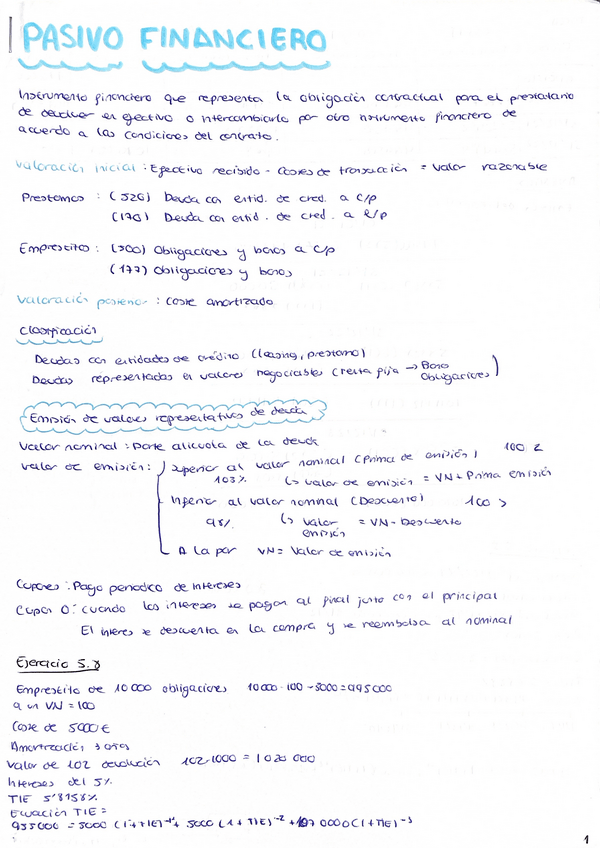 PASIVO FINANCIERO
Instrumento financiero que representa la obligación contractual para el prestatario
de devolver en efectivo o intercambiarlo por otro instrumento financiero de
acuerdo a las condiciones del contrato.
Valoración inicial : Efectivo recibido - Costes de transacción = Valor razonable
Prestamos : (520) Deuda con entid. de cred. a C/p
(170) Deuda con entid. de cred. a R/p
Emprestito : (500) Obligaciones y bonos a C/p
(177) Obligaciones y bonos
Valoración posterior : coste amortizado
Clasificación
Deudas con entidades de crédito (leasing, prestamo)
Deudas representadas en valores negociables (renta fija → Bono
Obligaciones)
Emisión de valores representativos de deuda
Valor nominal : Parte alicuota de la deuda
Valor de emisión : Superior al valor nominal (Prima de emisión) 100 <
103% ↳ Valor de emisión = VN + Prima emisión
Inferior al valor nominal (Descuento) 100 >
98% ↳ Valor = VN - Descuento
emisión
A la par VN = Valor de emisión
Cupones : Pago periodico de intereses
Cupon 0 : cuando los intereses se pagan al final junto con el principal
El interes se descuenta en la compra y se reembolsa al nominal
Ejercicio 5.8
Emprestito de 10 000 obligaciones 10 000 · 100 - 5000 = 995 000
a un VN = 100
Coste de 5000 €
Amortización 3 años
Valor de 102 devolución 102 · 1000 = 1 020 000
Intereses del 5%
TIE 5'8158%
Ecuación TIE =
995 000 = 5000 (1 + TIE)⁻¹ + 5000 (1 + TIE)⁻² + 000 (1 + TIE)⁻³
1